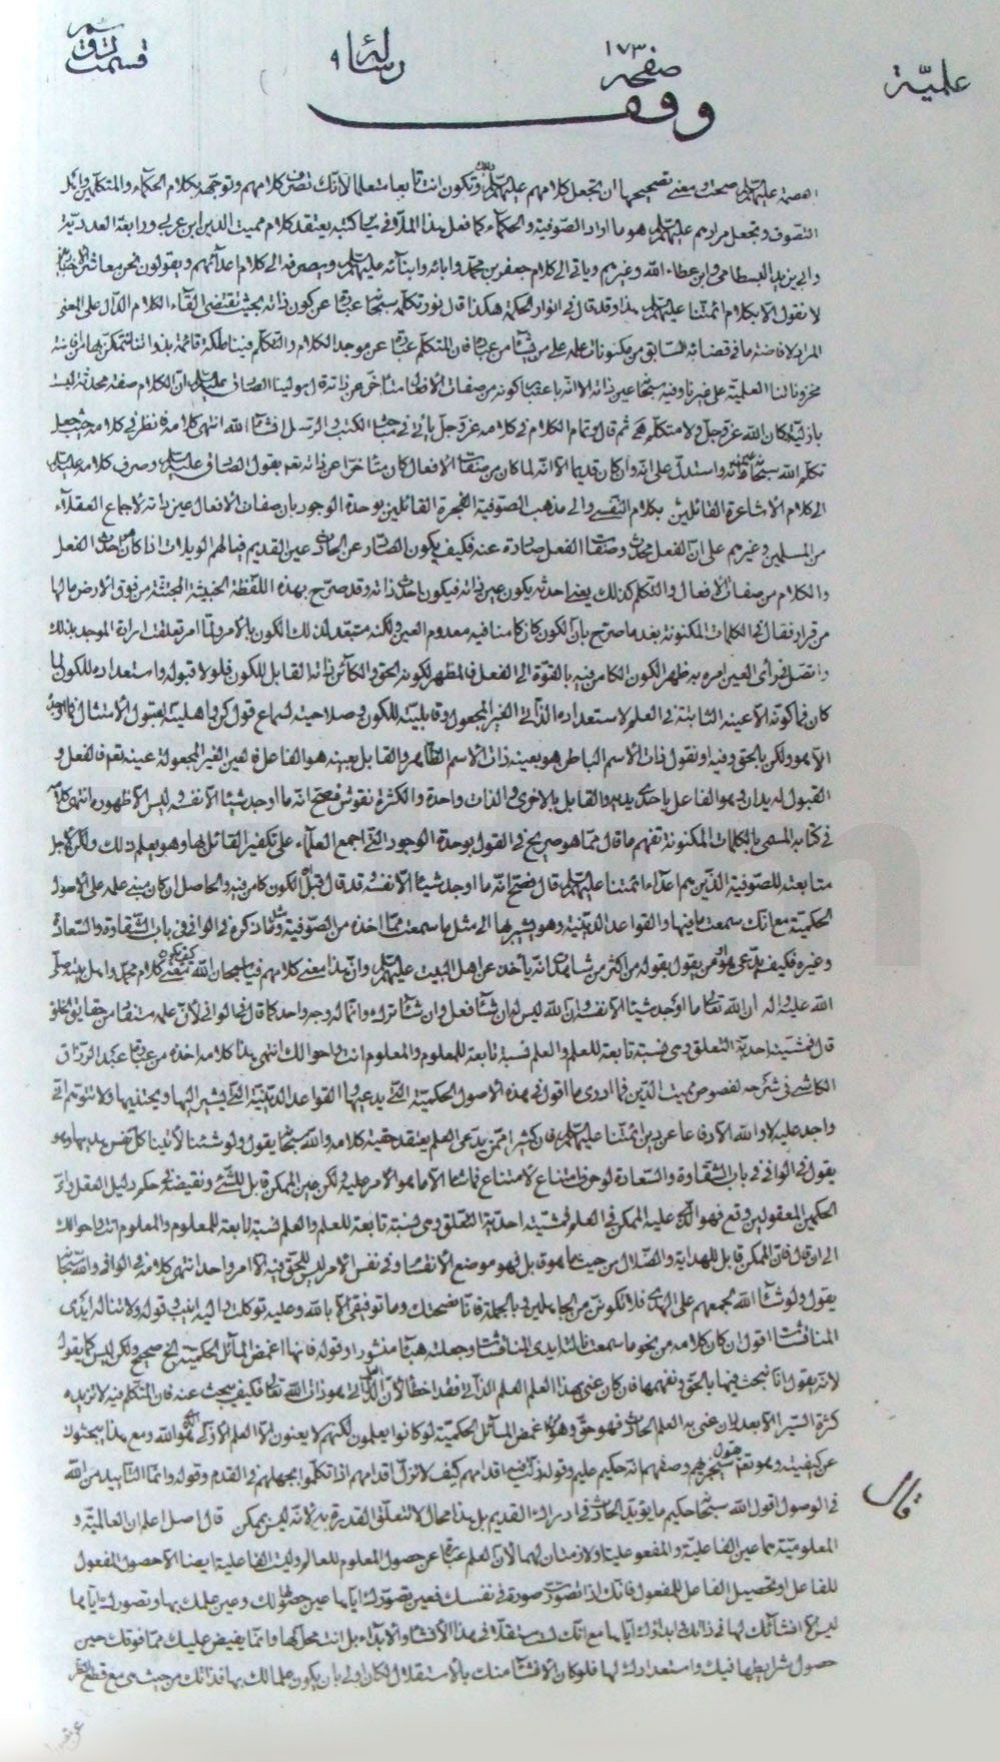 علميّة صفحه ١٧٣ رسالة ٩ قسمت
وقف
العصمة عليهم صحت ومعنى تصحيحها ان تجعل كلامهم عليهم وتكون انت تابعا متعلما لانك تصرف كلامهم وتوجّهه بكلام الحكماء والمتكلمين واهل
التصوف وتجعل مرادهم عليهم هو ما اراد الصّوفية والحكماء كما فعل هذا الملّا في كتبه يعتقد كلام مميت الدين ابن عربي ورابعة العدويّة
وابي يزيد البسطامي وابن عطاء الله وغيرهم وياتي الى كلام جعفر بن محمد وابائه وابنائه عليهم ويصرفه الى كلام اعدائهم ويقولون نحن معاشر
لا نقول الا بكلام ائمتنا عليهم هذا وقد قال في انوار الحكمة هكذا قال نور تكلّمه سبحانه عبارة عن كون ذاته بحيث تقتضي القاء الكلام الدّال على المعنى
المراد لافاضة ما في قضائه السّابق من مكنونات علمه على من يشاء من عباده فان المتكلم عبارة عن موجد الكلام والتكلّم فينا ملكة قائمة بذواتنا نتمكن بها من افاضة
مخزوناتنا العلميّة على غيرنا وفيه سبحانه عين ذاته الا انّه باعتبار كونه من صفات الافعال متاخر عن ذاته قال مولينا الصادق عليه انّ الكلام صفة محدثة ليست
بازليّة كان الله عز وجل ولا متكلّم ثم قال وتمام الكلام في كلامه عز وجل ياتي في مباحث الكتب والرسل انشاء الله انتهى كلامه فانظر في كلامه حيث جعل
تكلم الله سبحانه ذاته واستدلّ على انّه وان كان قديما الا انّه لما كان من صفات الافعال كان متاخرا عن ذاته نعم يقول الصادق عليه وصرف كلامه عليه
الى كلام الاشاعرة القائلين بكلام النفسي والى مذهب الصّوفية الفجرة القائلين بوحدة الوجود بان صفات الافعال عين ذاته لاجماع العقلاء
من المسلمين وغيرهم على انّ الفعل محدث وصفات الفعل صادرة عنه فكيف يكون الصّادر عن الحادث عين القديم فيا لهم الويلات اذا كان احدث الفعل
والكلام من صفات الافعال والتكلّم كذلك يعني احدثه يكون عين ذاته فيكون احدث ذاته وقد صرّح بهذه اللفظة الخبيثة المجتثّة من فوق الارض ما لها
من قرار فقال في الكلمات المكنونة بعد ما صرّح بانّ الكون كان كامنا فيه معدوم العين ولكنه مستعد لذلك الكون بالامر ولمّا امر تعلقت ارادة الموجد بذلك
واتصل في راى العين امره به ظهر الكون الكامن فيه بالقوّة الى الفعل فالمظهر لكونه الحق والكائن ذاته القابل للكون فلولا قبوله واستعداده للكون لما
كان فما كوّنه الا عينه الثابتة في العلم لاستعداده الذاتي الغير المجعول وقابليته للكون وصلاحيته لسماع قول كن واهليته لقبول الامتثال فما اوجده
الا هو ولكن بالحق وفيه او نقول ذات الاسم الباطن هو بعينه ذات الاسم الظاهر والقابل بعينه هو الفاعل فالعين الغير المجعولة عينه تعم فالفعل و
القبول له يدان وهو الفاعل باحدى يديه والقابل بالاخرى والذات واحدة والكثرة نقوش فصح انّه ما اوجد شيئا الا نفسه وليس الا ظهوره انتهى كلامه
في كتابه المسمّى بالكلمات المكنونة تفهم ما قال ممّا هو صريح في القول بوحدة الوجود الّتي اجمع العلماء على تكفير القائل بها وهو يعلم ذلك ولكن لاجل
متابعته للصّوفية الّذين هم اعداء ائمتنا عليهم قال فصح انّه ما اوجد شيئا الا نفسه وقد قال قبل الكون كامن فيه والحاصل ان كان مبنى علمه على الاصول
الحكميّة مع انك سمعت ما فيها والقواعد الدينيّة وهو يشير بها الى مثل ما سمعت ممّا اخذه من الصّوفية ومثل ما ذكره في الوافي في باب الشقاوة والسّعادة
وغيره فكيف يدّعي هو من يقول بقوله من اكثر من شاهدنا انّه ياخذ عن اهل البيت عليهم وانّ هذا معنى كلامهم فيا سبحان الله كيف يكون معنى كلام محمّد واهل بيته صلى
الله عليه واله ان الله تعالى ما اوجد شيئا الا نفسه وان الله ليس له ان شاء فعل وان شاء ترك وانما له وجه واحد كما قال في الوافي لانّ علمه مستفاد من حقايق الخلق
قال فمشيته احدية التعلق وهي نسبة تابعة للعلم والعلم نسبة تابعة للمعلوم والمعلوم انت واحوالك انتهى هذا كلامه اخذه من عبد الرزاق
الكاشي في شرحه لفصوص مميت الدّين فما ادري ما اقول في هذه الاصول الحكميّة الّتي يدعيها القواعد الدينيّة الّتي يشير اليها ويحتذيها ولا تتوهّم انّي
واجد عليه لا والله الا دفاعا عن دين ائمتنا عليهم فان كثيرا ممّن يدّعي العلم يعتقد حقية كلامه والله سبحانه يقول ولو شئنا لاتينا كل نفس هديها وهو
يقول في الوافي في باب الشقاوة والسّعادة لو حرف امتناع لامتناع فما شاء الا ما هو الامر عليه ولكن عين الممكن قابل للشّيء ونقيضه في حكم دليل العقل واي
الحكمين المعقولين وقع فهو الّذي عليه الممكن في العلم فمشيّته احديّة التعلّق وهي نسبة تابعة للعلم والعلم نسبة تابعة للمعلوم والمعلوم انت واحوالك
الى ان قال فان الممكن قابل للهداية والضّلال من حيث ما هو قابل فهو موضع الانقسام وفي نفس الامر ليس للحقّ فيه الا امر واحد انتهى كلامه في الوافي والله سبحانه
يقول ولو شاء الله لجمعهم على الهدى فلا تكوننّ من الجاهلين وبالجملة فانا نصحتك وما توفيقي الا بالله وعليه توكلت واليه انيب وقوله ولا تناله ايدي
المناقشات اقول ان كان كلامه من نحو ما سمعت نالته ايدي المناقشات وجعلته هباء منثورا وقوله فانها اغمض المسائل الحكميّة الخ صحيح ولكن ليس كما يقول
لانّه يقول انّا نبحث فيها بالحق ونفهمها فان كان عنى بهذا العلم العلم الذاتي فقد اخطا لانّ الذاتي هو ذات الله تعالى فكيف يبحث عنه فان المتكلم فيه لا تزيده
كثرة السّير الا بعدا وان عنى به العلم الحادث فهو حقّ وهو اغمض المسائل الحكميّة لو كانوا يعلمون لكنهم لا يعنون الا العلم الازلي الّذي هو الله ومع هذا يبحثون
عن كيفيته وهو تعم سيجزيهم وصفهم انه حكيم عليم وقوله زلّت فيه اقدامهم كيف لا تزلّ اقدامهم اذا تكلّموا بجهلهم في القدم وقوله وانّما التاييد من الله
في الوصول اقول الله سبحانه حكيم ما يؤيد الحادث في ادراك القديم بل هذا محال لا تتعلّق القدرة به لانّه ليس بممكن قال اصل اعلم ان العالميّة و
المعلوميّة هما عين الفاعليّة والمفعوليّة او لازمتان لهما لان العلم عبارة عن حصول المعلوم للعالم وليست الفاعلية ايضا الا حصول المفعول
للفاعل او تحصيل الفاعل للمفعول فانك اذا تصورت صورة في نفسك فعين تصوّرك ايّاها عين حصولها لك وعين علمك بها وتصورك ايّاها
ليس الا انشائك لها في ذاتك وابداؤك ايّاها مع انّك لست مستقلا في هذا الانشاء والابداء بل انت محل لها وانّما يفيض عليك ممّا فوقك حين
حصول شرايطها فيك واستعدادك لها فلو كان الانشاء منك بالاستقلال لكان اولى بان يكون علما لك بها فذاتك من حيث هي مع قطع
قال